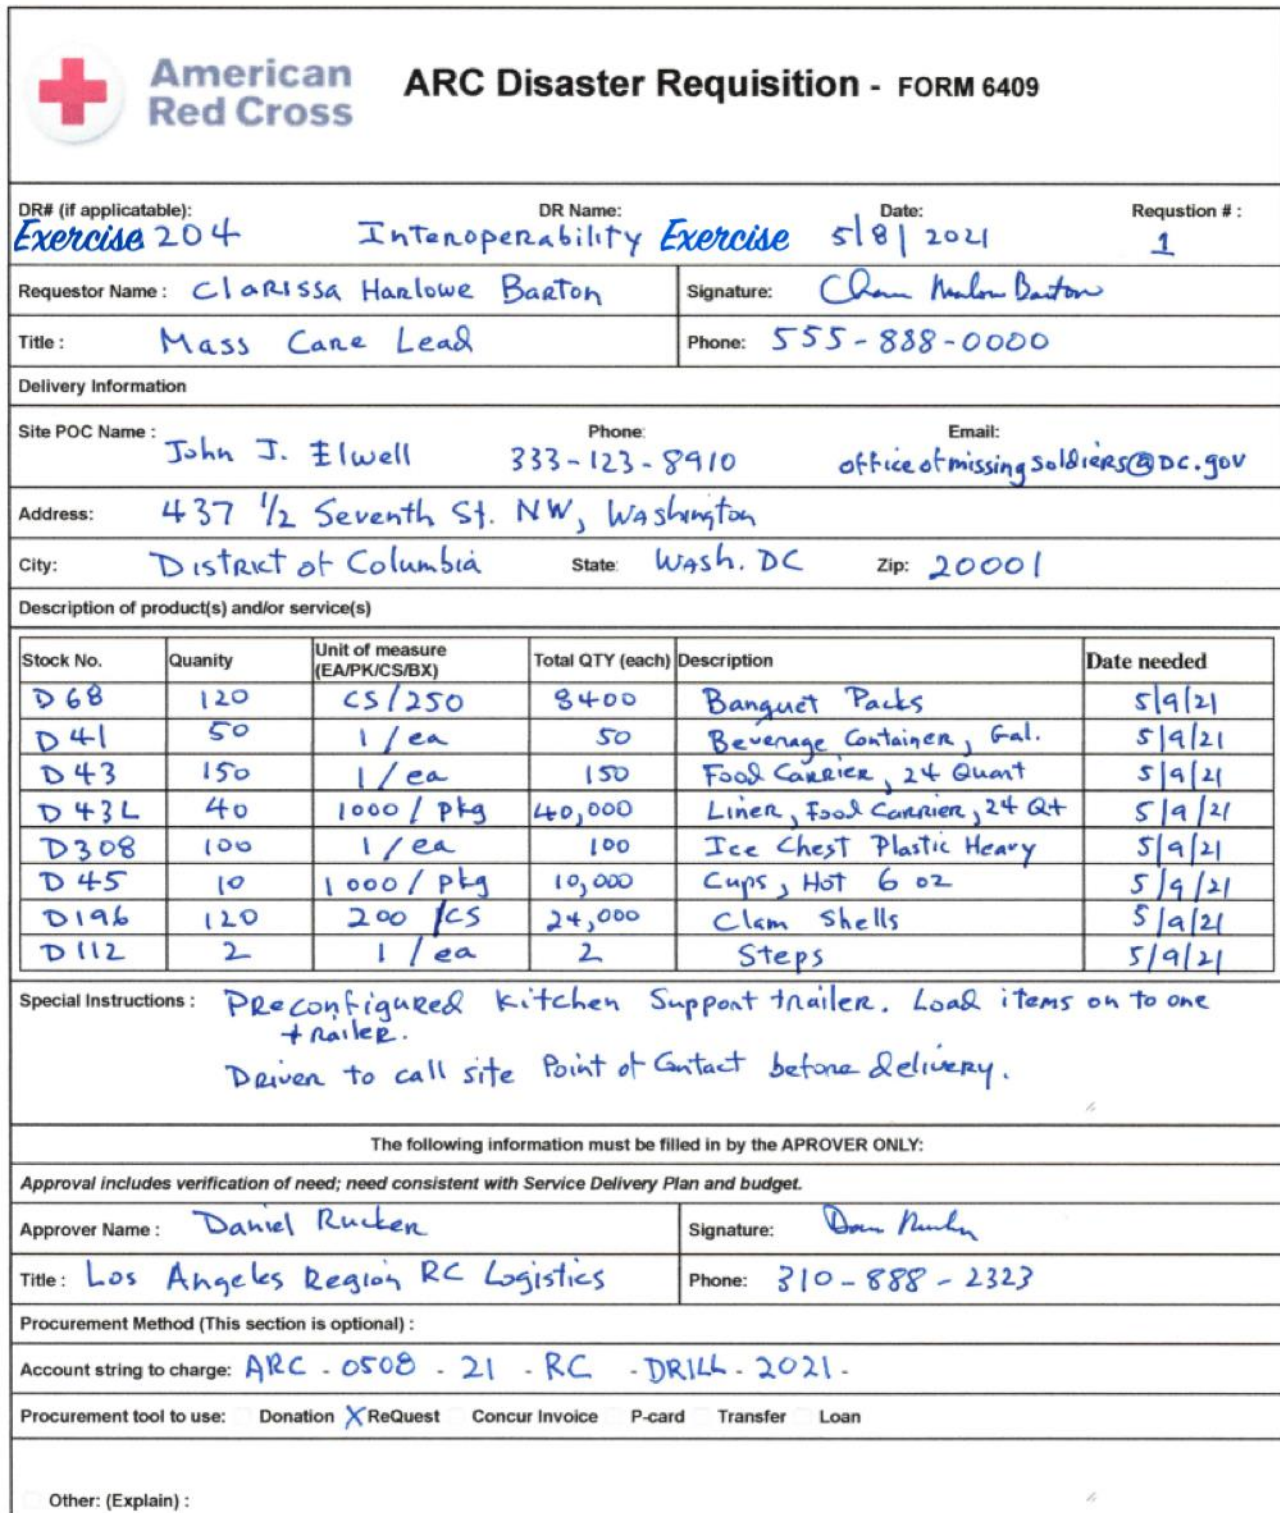 American
Red Cross
ARC Disaster Requisition - FORM 6409
DR# (if applicatable): DR Name: Date: Requstion # :
Exercise 204 Interoperability Exercise 5/8/2021 1
Requestor Name : Clarissa Harlowe Barton Signature: Harlow Barton
Title : Mass Care Lead Phone: 555-888-0000
Delivery Information
Site POC Name : Phone: Email:
John J. Elwell 333-123-8910 officeofmissingsoldiers@DC.gov
Address: 437 1/2 Seventh St. NW, Washington
City: District of Columbia State: Wash. DC Zip: 20001
Description of product(s) and/or service(s)
Stock No. Quanity Unit of measure (EA/PK/CS/BX) Total QTY (each) Description Date needed
D68 120 CS/250 8400 Banquet Packs 5/9/21
D41 50 1/ea 50 Beverage Container, Gal. 5/9/21
D43 150 1/ea 150 Food Carrier, 24 Quart 5/9/21
D43L 40 1000/pkg 40,000 Liner, Food Carrier, 24 Qt 5/9/21
D308 100 1/ea 100 Ice Chest Plastic Heavy 5/9/21
D45 10 1000/pkg 10,000 Cups, Hot 6 oz 5/9/21
D196 120 200/CS 24,000 Clam Shells 5/9/21
D112 2 1/ea 2 Steps 5/9/21
Special Instructions : Preconfigured Kitchen Support trailer. Load items on to one
trailer.
Driver to call site Point of Contact before delivery.
The following information must be filled in by the APROVER ONLY:
Approval includes verification of need; need consistent with Service Delivery Plan and budget.
Approver Name : Daniel Rucker Signature: Dan
Title : Los Angeles Region RC Logistics Phone: 310-888-2323
Procurement Method (This section is optional) :
Account string to charge: ARC - 0508 - 21 - RC - DRILL - 2021 -
Procurement tool to use: Donation X ReQuest Concur Invoice P-card Transfer Loan
Other: (Explain) :